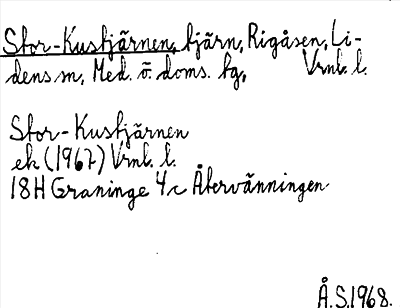 Stor-Kustjärnen, tjärn, Rigåsen, Li-
dens sn, Med. ö. doms. tg, Vrnl. l.
Stor-Kustjärnen
ek (1967) Vrnl. l.
18H Graninge 4c Återvänningen
Å.S.1968.